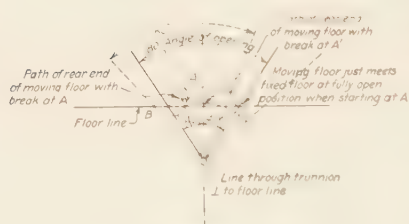 angle of opening
of moving floor with
break at A'
Path of rear end
of moving floor with
break at A
Moving floor just meets
fixed floor at fully open
position when starting at A
B
Floor line
Line through trunnion
⊥ to floor line